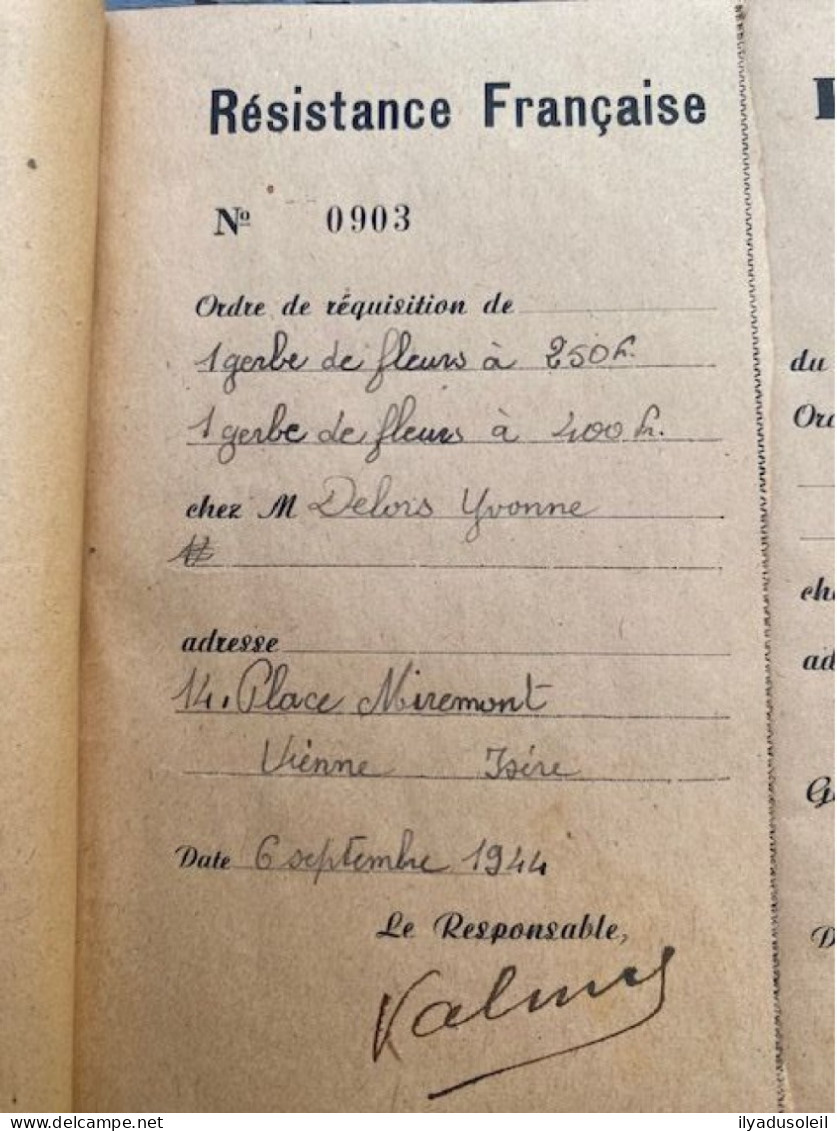 Résistance Française
Nº 0903
Ordre de réquisition de
1 gerbe de fleurs à 250 f.
1 gerbe de fleurs à 400 f.
chez M Delors Yvonne
adresse
14, Place Miremont
Vienne Isère
Date 6 septembre 1944
Le Responsable,
du
Ord
che
ad
D
delcampe.net
ilyadusoleil